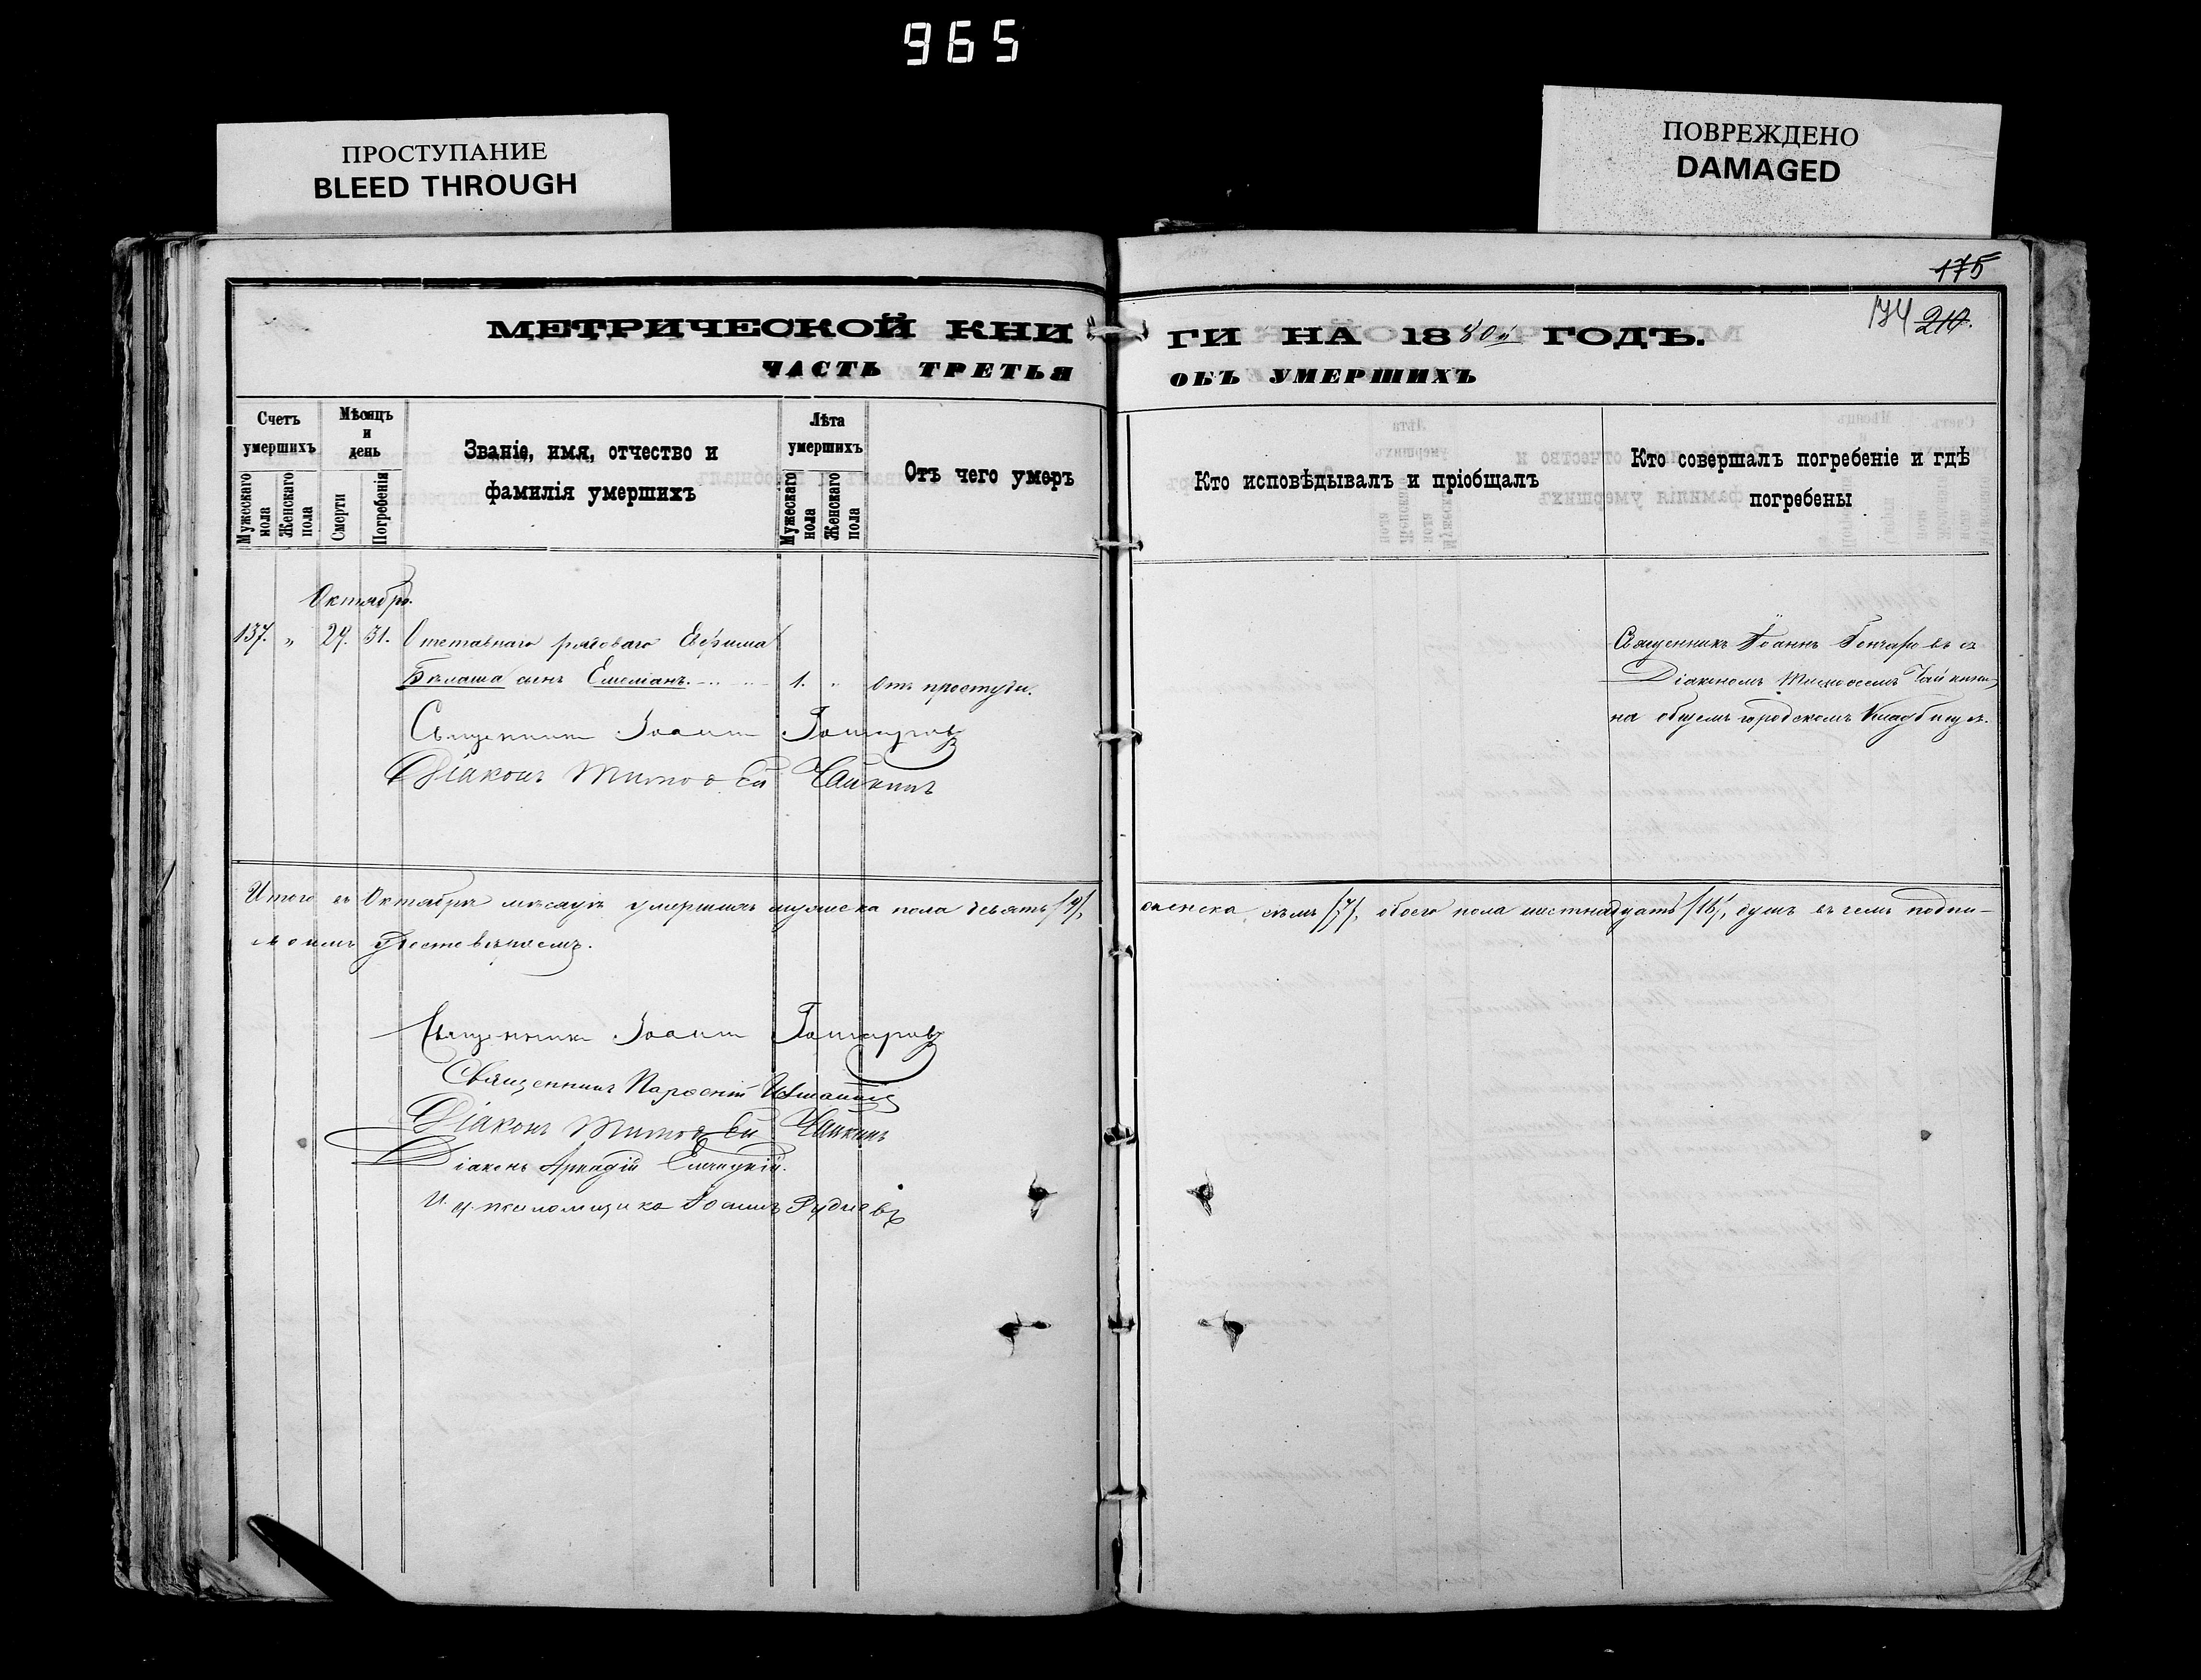 965
ПРОСТУПАНИЕ
BLEED THROUGH
ПОВРЕЖДЕНО
DAMAGED
175
174 210.
МЕТРИЧЕСКОЙ КНИ
ГИ НА 1880й ГОДЪ.
ЧАСТЬ ТРЕТЬЯ
ОБЪ УМЕРШИХЪ
Счетъ умершихъ
Мужескаго пола
Женскаго пола
Мѣсяцъ и день
Смерти
Погребенія
Званіе, имя, отчество и
фамилія умершихъ
Лѣта умершихъ
Мужескаго пола
Женскаго пола
Отъ чего умеръ
Кто исповѣдывалъ и пріобщалъ
Кто совершалъ погребеніе и гдѣ
погребены
Октябрь.
137. „ 29. 31. Отставнаго рядоваго Ефима
Бѣлаша сынъ Емеліанъ. 1. „ Отъ простуды.
Священникъ Іоаннъ Гончаровъ съ
Діакономъ Тимофеемъ Чайкинымъ
на общемъ городскомъ Кладбищѣ.
Священникъ Іоаннъ Гончаровъ
Діаконъ Тимофей Чайкинъ
Итого въ Октябрѣ мѣсяцѣ умершихъ мужеска пола девять /9/, женска семь /7/, обоего пола шестнадцать /16/, душъ въ чемъ подпи-
Священникъ Іоаннъ Гончаровъ
Священникъ Парфеній
Діаконъ Тимофей Чайкинъ
Діаконъ Аркадій
И. д. псаломщика Іоаннъ Рудневъ